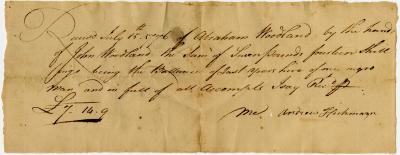 Receivd July 15. 1776 of Abraham Woodland by the hand
of John Woodland the Sum of Seven pounds fourteen Shill
ings being the Ballance of last years hire of one negro
man and in full of all Accompts I say Recd
£7 - 14 - 9
me Andrew